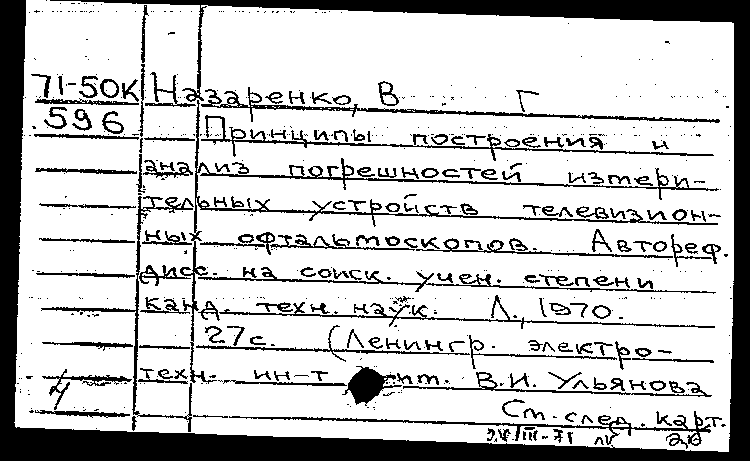 71-50К Назаренко, В Г
596 Принципы построения и
анализ погрешностей измери-
тельных устройств телевизион-
ных офтальмоскопов. Автореф.
дисс. на соиск. учен. степени
канд. техн. наук. Л., 1970.
27с. (Ленингр. электро-
техн. ин-т им. В.И. Ульянова
4 См. след. карт.